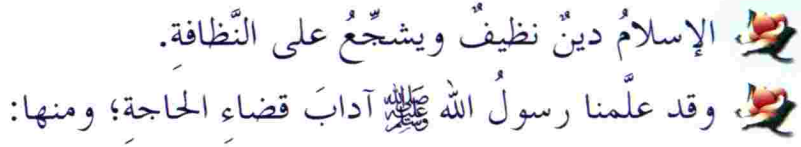 الإسلامُ دينٌ نظيفٌ ويشجِّعُ على النَّظافةِ.
وقد علَّمنا رسولُ الله ﷺ آدابَ قضاءِ الحاجةِ؛ ومنها: